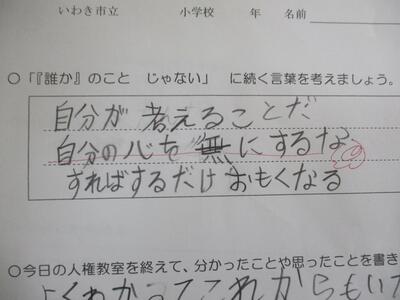 いわき市立 小学校 年 名前
○「『誰か』のこと じゃない」 に続く言葉を考えましょう。
自分が考えることだ
自分の心を"無"にするな
すればするだけおもくなる
○今日の人権教室を終えて、分かったことや思ったことを書き
よくわかってこれからもいた